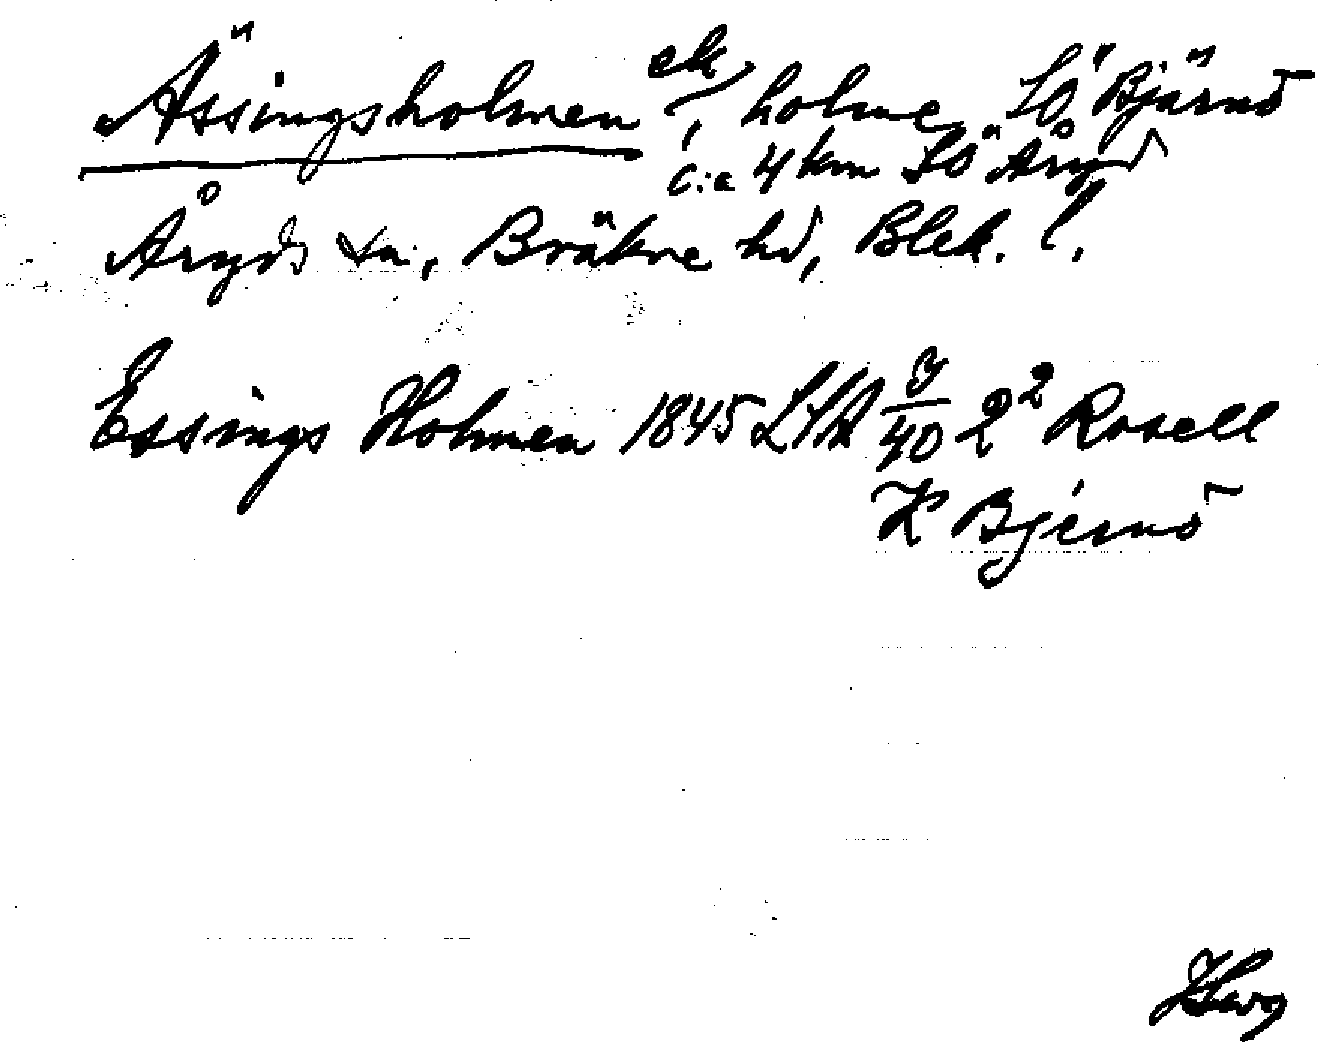 Ässingsholmen ek/, holme SÖ Bjärnö
c:a 4 km SÖ Åryd
Åryds sn, Bräkne hd, Blek. l.
Essings Holmen 1845 LSA 40 2² Rosell
K Bjérnö